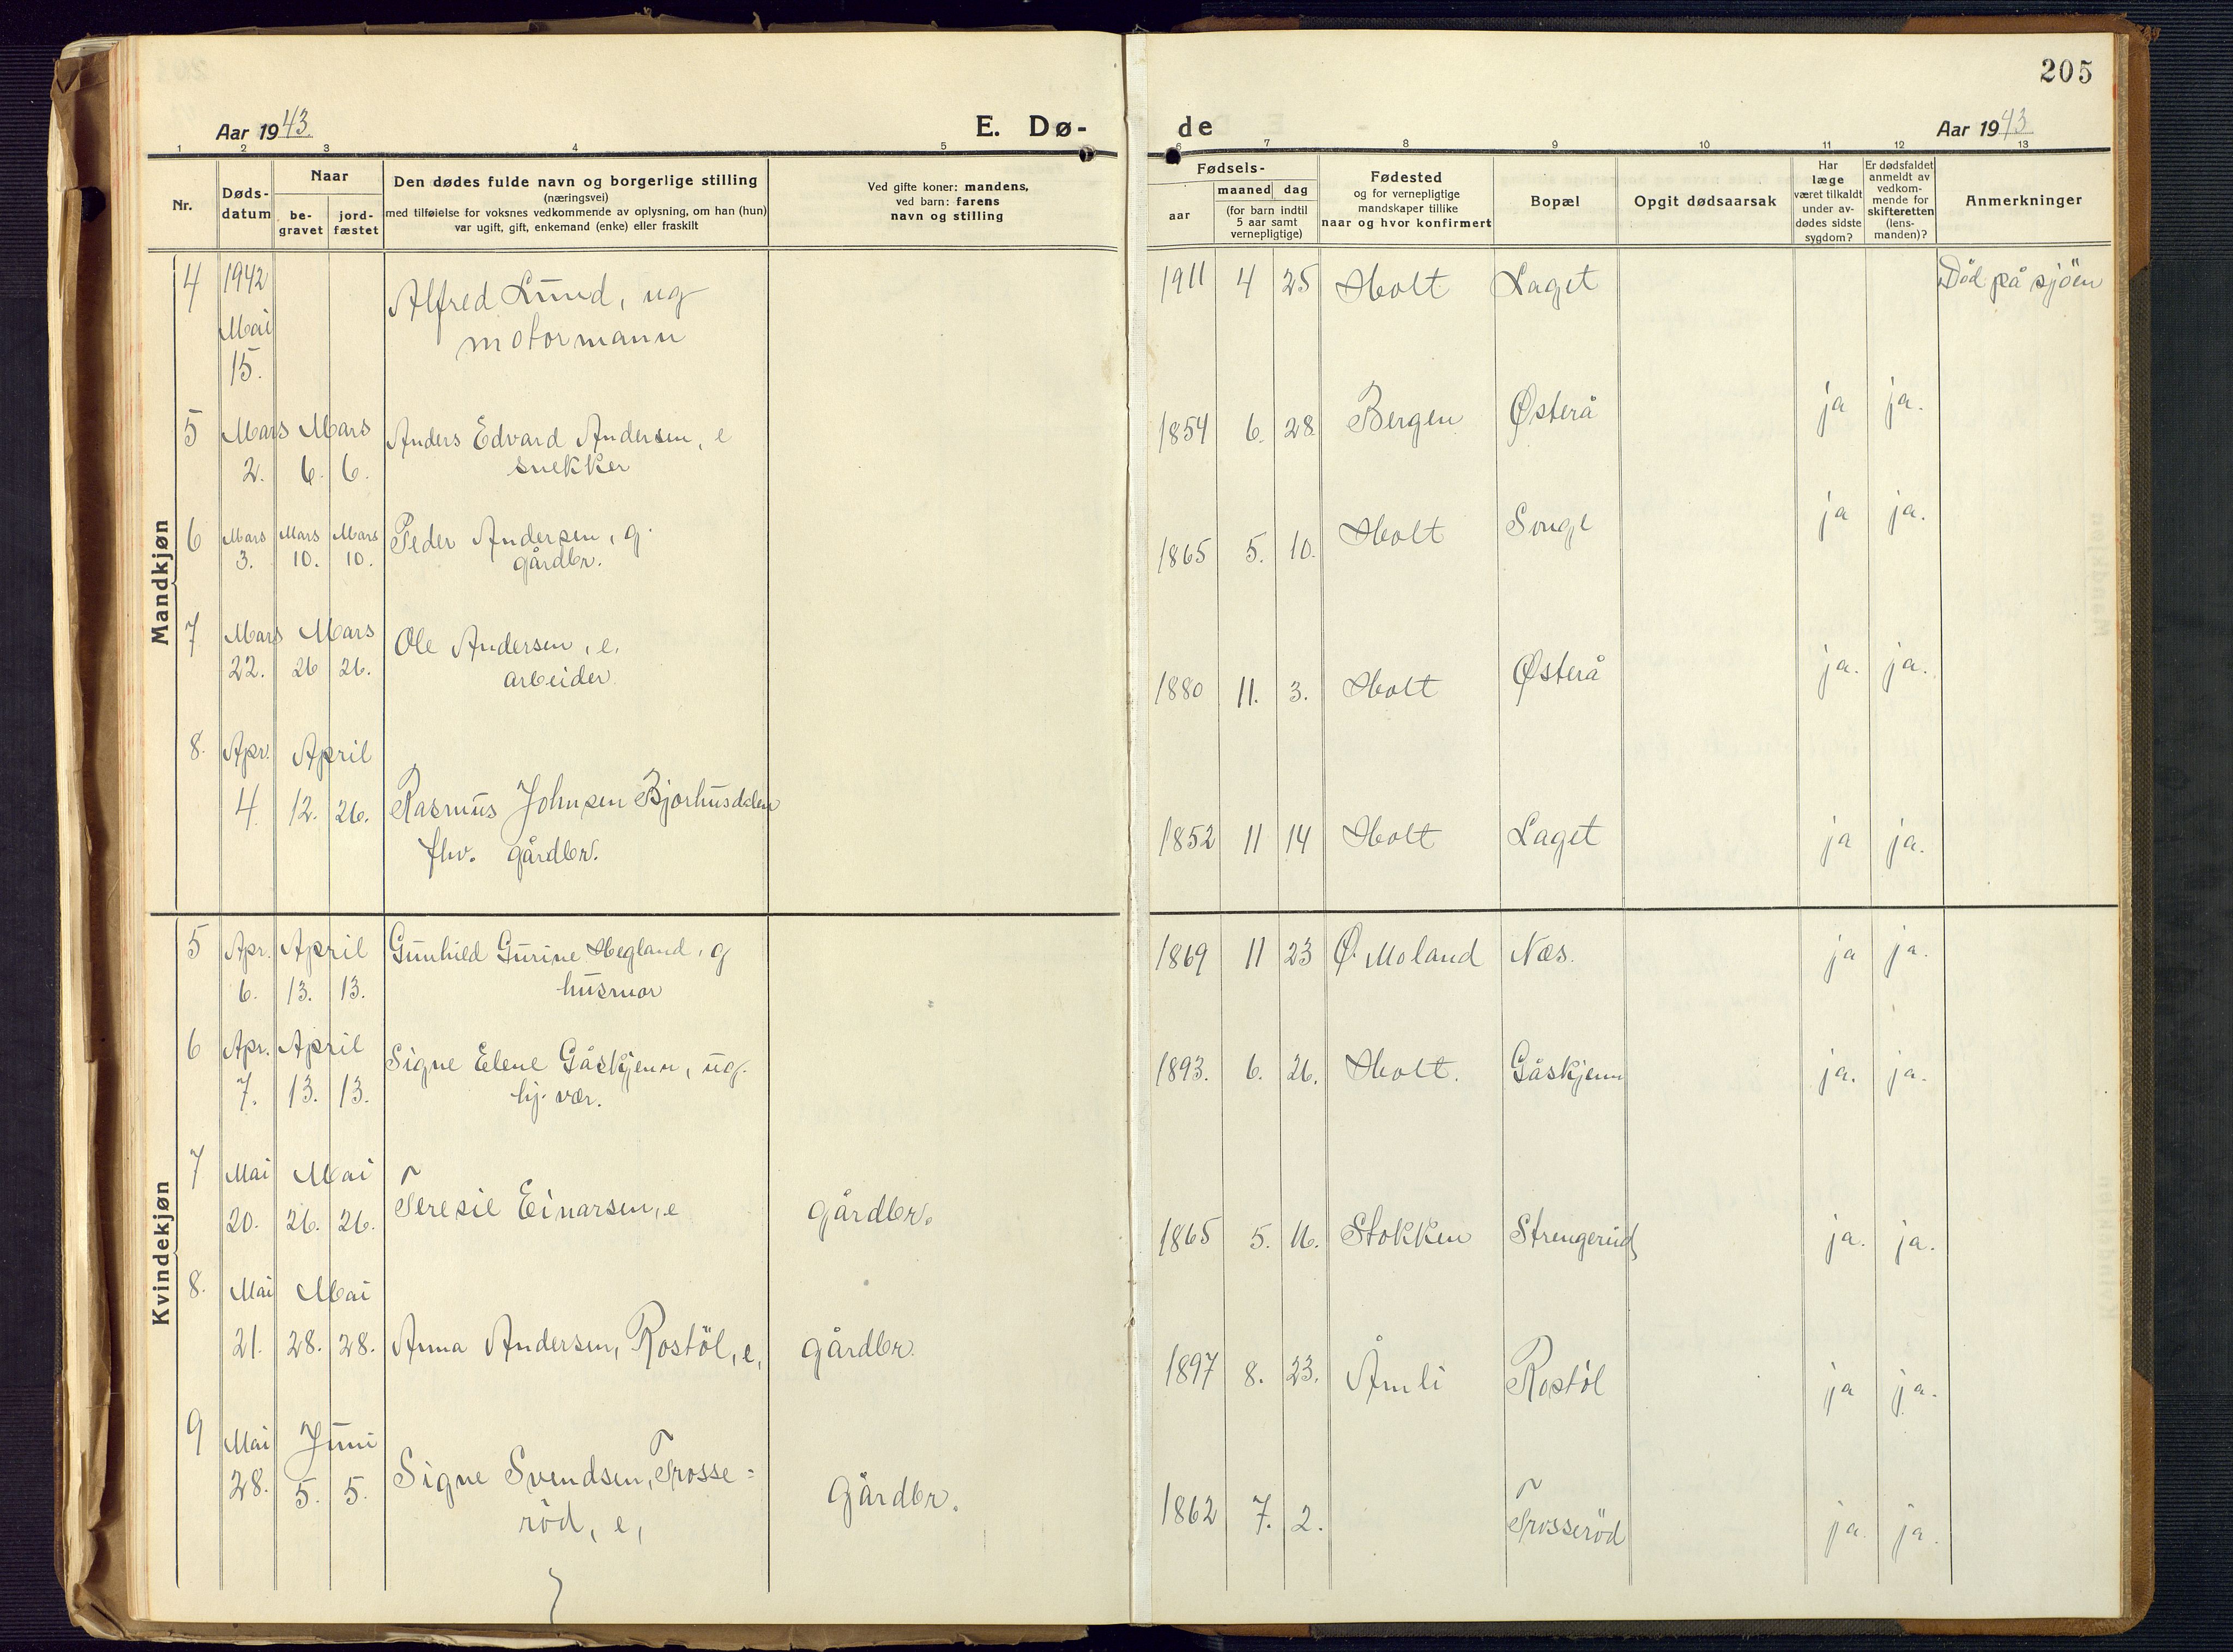 205
Aar 1943
E. Dø-
de
Aar 1943
1 2 3 4 5 6 7 8 9 10 11 12 13
Nr.
Døds-
datum
Naar
be-
gravet
jord-
fæstet
Den dødes fulde navn og borgerlige stilling
(næringsvei)
med tilføielse for voksnes vedkommende av oplysning, om han (hun)
var ugift, gift, enkemand (enke) eller fraskilt
Ved gifte koner: mandens,
ved barn: farens
navn og stilling
Fødsels-
aar
maaned dag
(for barn indtil
5 aar samt
vernepligtige)
Fødested
og for vernepligtige
mandskaper tillike
naar og hvor konfirmert
Bopæl
Opgit dødsaarsak
Har
læge
været tilkaldt
under av-
dødes sidste
sygdom?
Er dødsfaldet
anmeldt av
vedkom-
mende for
skifteretten
(lens-
manden)?
Anmerkninger
Mandkjøn
4 1942 Alfred Lund, ug 1911 4 25 Holt Laget Död på sjöen
Mai motormann
15.
5 Mars Mars Anders Edvard Andersen, e 1854 6. 28 Bergen Østerå ja ja.
2. 6. 6. snekker
6 Mars Mars Mars Peder Andersen, g. 1865 5. 10. Holt Songe ja ja.
3. 10. 10. gårdbr.
7 Mars Mars Ole Andersen, e. 1880 11. 3. Holt Østerå ja. ja.
22. 26 26. arbeider
8. Apr. April
4. 12. 26. Rasmus Johnsen Bjorhusdalen 1852 11 14 Holt Laget ja ja.
fhv. gårdbr.
Kvindekjøn
5 Apr. April Gunhild Gurine Hegland, g 1869 11 23 Ø. Moland Næs. ja ja.
6. 13. 13. husmor
6 Apr. April Signe Elene Gåskjenn, ug. 1893. 6. 26. Holt. Gåskjenn ja. ja.
7. 13. 13. hj. vær.
7 Mai Mai
20. 26. 26. Teresie Einarsen, e gårdbr. 1865 5. 16. Stokken Strengerud ja. ja.
8. Mai Mai
21. 28. 28. Anna Andersen, Rostöl, e, gårdbr. 1897 8. 23. Åmli Rostöl ja ja.
9 Mai Juni Signe Svendsen, Trosse= gårdbr. 1862 7. 2. Trosseröd ja. ja.
28. 5. 5. röd, e,